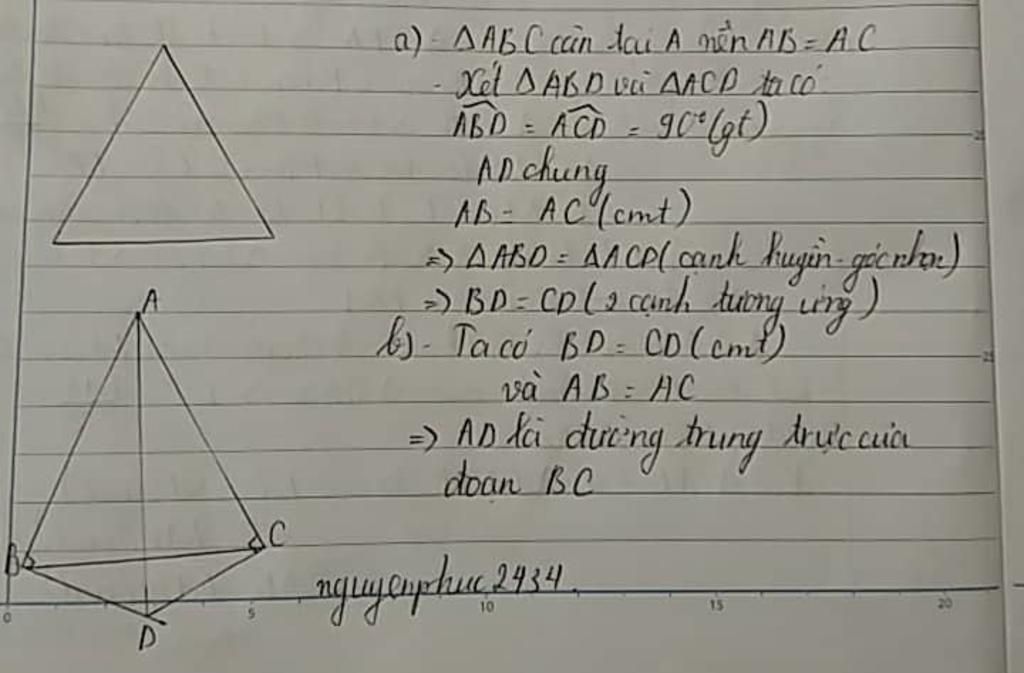 a) - ΔABC cân tại A nên AB = AC
- Xét ΔABD và ΔACD ta có
\widehat{ABD} = \widehat{ACD} = 90° (gt)
AD chung
AB = AC (cmt)
=> ΔABD = ΔACD (cạnh huyền - góc nhọn)
=> BD = CD (2 cạnh tương ứng)
b) - Ta có BD = CD (cmt)
và AB = AC
=> AD là đường trung trực của
đoạn BC
A
B
C
D
nguyenphuc2434.
0 5 10 15 20